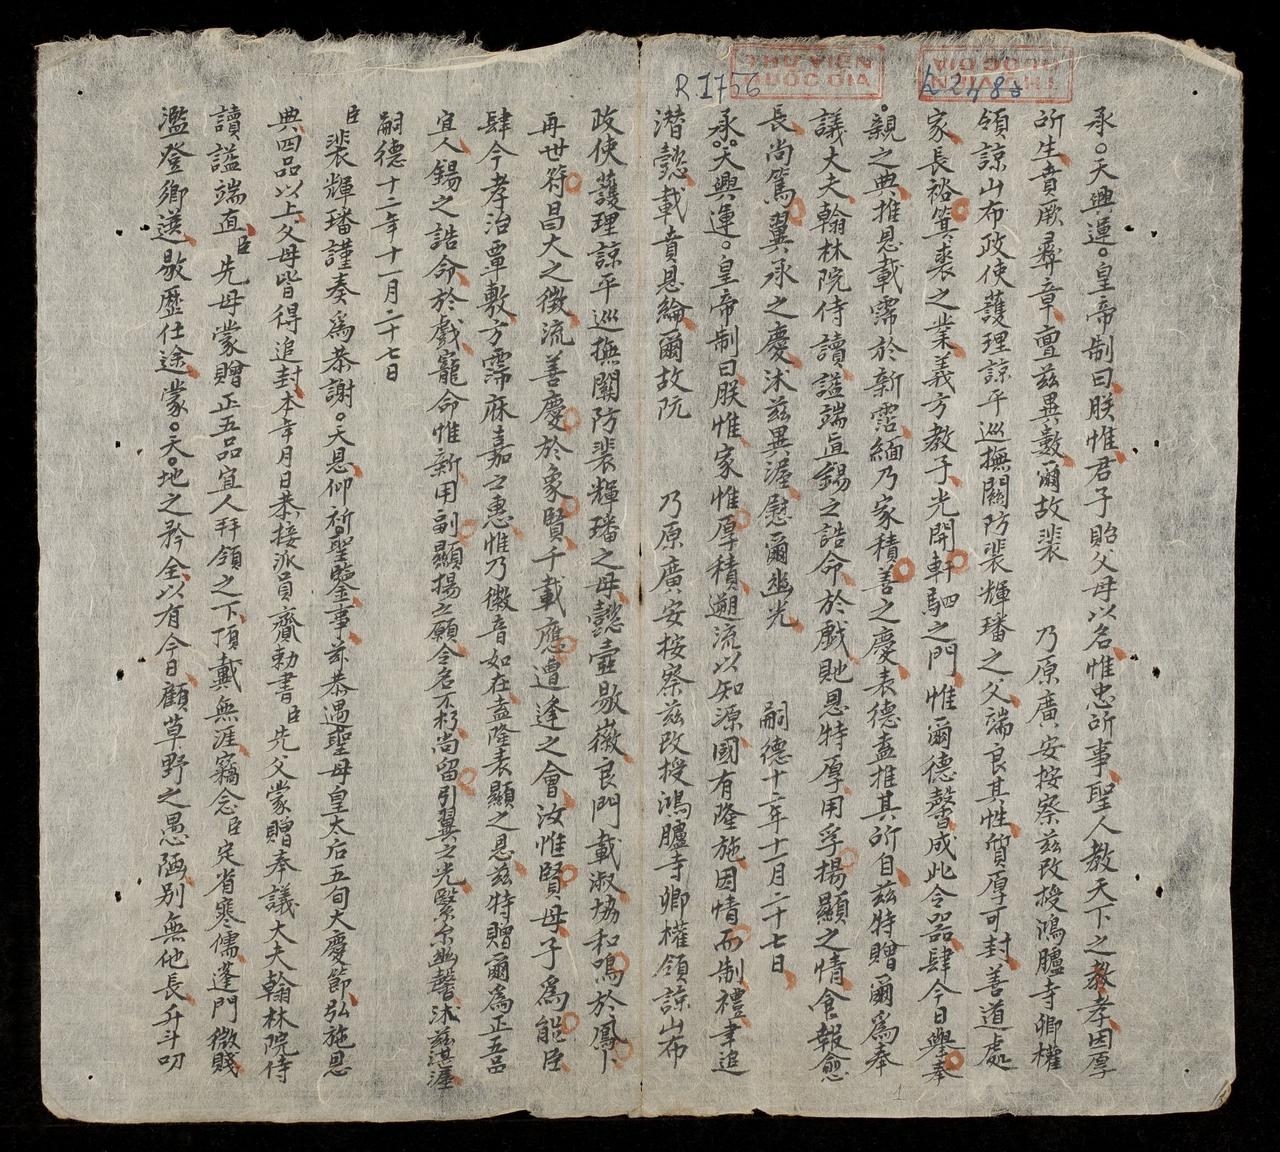 R.1756
承天興運皇帝制曰朕惟君子貽父母以名惟忠所事聖人教天下之教孝因厚
所生賁厥彝章亶茲異數爾故裴 乃原廣安按察茲改授鴻臚寺卿權
領諒山布政使護理諒平巡撫關防裴輝璠之父端良其性質厚可封善道處
家長裕箕裘之業義方教子光開軒駟之門惟爾德馨成此令器肆今日舉奉
親之典推恩載霈於新霑緬乃家積善之慶表德盍推其所自茲特贈爾為奉
議大夫翰林院侍讀謚端直錫之誥命於戲貤恩特厚用孚揚顯之情食報愈
長尚篤翼承之慶沭茲異渥慰爾幽光 嗣德十二年十一月二十七日
承天興運皇帝制曰朕惟家惟厚積遡流以知源國有隆施因情而制禮聿追
潛懿載賁恩綸爾故阮 乃原廣安按察茲改授鴻臚寺卿權領諒山布
政使護理諒平巡撫關防裴輝璠之母懿壼歇徽良門載淑協和鳴於鳳卜
再世符昌大之徵流善慶於象賢千載應遭逢之會汝惟賢母子為能臣
肆今孝治覃敷方霈庥嘉之惠惟乃徽音如在盍隆表顯之恩茲特贈爾為正五品
宜人錫之誥命於戲寵命惟新用副顯揚之願令名不朽尚留引翼之光緊爾幽馨沭茲湛渥
嗣德十二年十一月二十七日
臣裴輝璠謹奏為恭謝天恩仰祈聖鑒事茲恭遇聖母皇太后五旬大慶節弘施恩
典四品以上父母皆得追封本年月日恭接派員齎勅書臣先父蒙贈奉議大夫翰林院侍
讀謚端直臣先母蒙贈正五品宜人拜領之下頂戴無涯竊念臣定省寒儒蓬門微賤
濫登鄉選歇歷仕途蒙天地之矜全以有今日顧草野之愚陋別無他長升斗叨